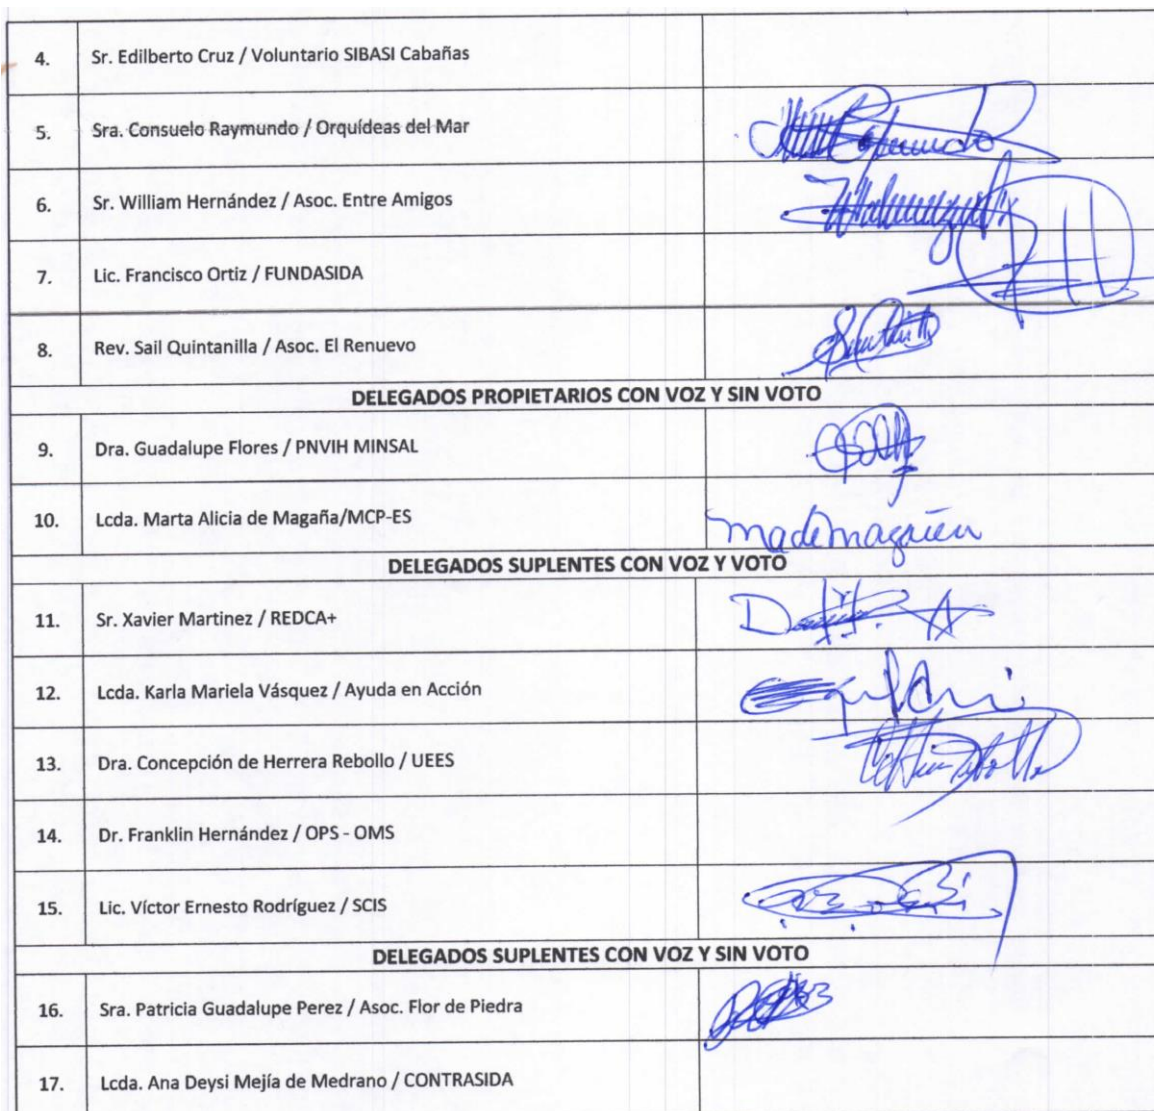 4. Sr. Edilberto Cruz / Voluntario SIBASI Cabañas
5. Sra. Consuelo Raymundo / Orquídeas del Mar
6. Sr. William Hernández / Asoc. Entre Amigos
7. Lic. Francisco Ortiz / FUNDASIDA
8. Rev. Sail Quintanilla / Asoc. El Renuevo
DELEGADOS PROPIETARIOS CON VOZ Y SIN VOTO
9. Dra. Guadalupe Flores / PNVIH MINSAL
10. Lcda. Marta Alicia de Magaña/MCP-ES
DELEGADOS SUPLENTES CON VOZ Y VOTO
11. Sr. Xavier Martinez / REDCA+
12. Lcda. Karla Mariela Vásquez / Ayuda en Acción
13. Dra. Concepción de Herrera Rebollo / UEES
14. Dr. Franklin Hernández / OPS - OMS
15. Lic. Víctor Ernesto Rodríguez / SCIS
DELEGADOS SUPLENTES CON VOZ Y SIN VOTO
16. Sra. Patricia Guadalupe Perez / Asoc. Flor de Piedra
17. Lcda. Ana Deysi Mejía de Medrano / CONTRASIDA